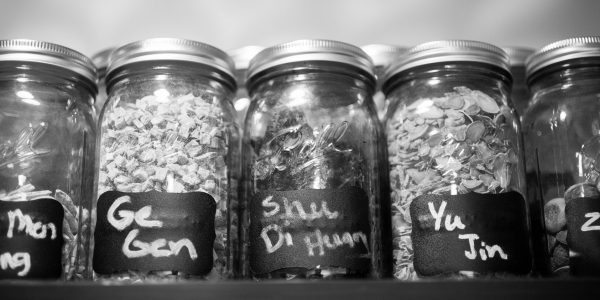 Mon
ng
Ge
Gen
Shu
Di Huang
Yu
Jin
Z